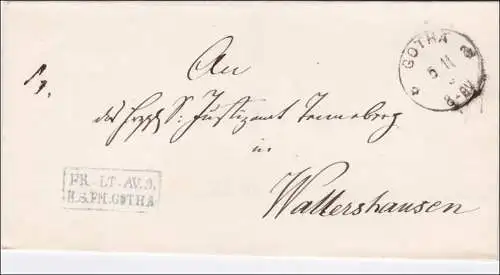 GOTHA
5 11
8-9V
An
das Herzogl. S. Justizamt Tenneberg
in
FR. LT. AV. 9.
H.S.PM.GOTHA
Waltershausen